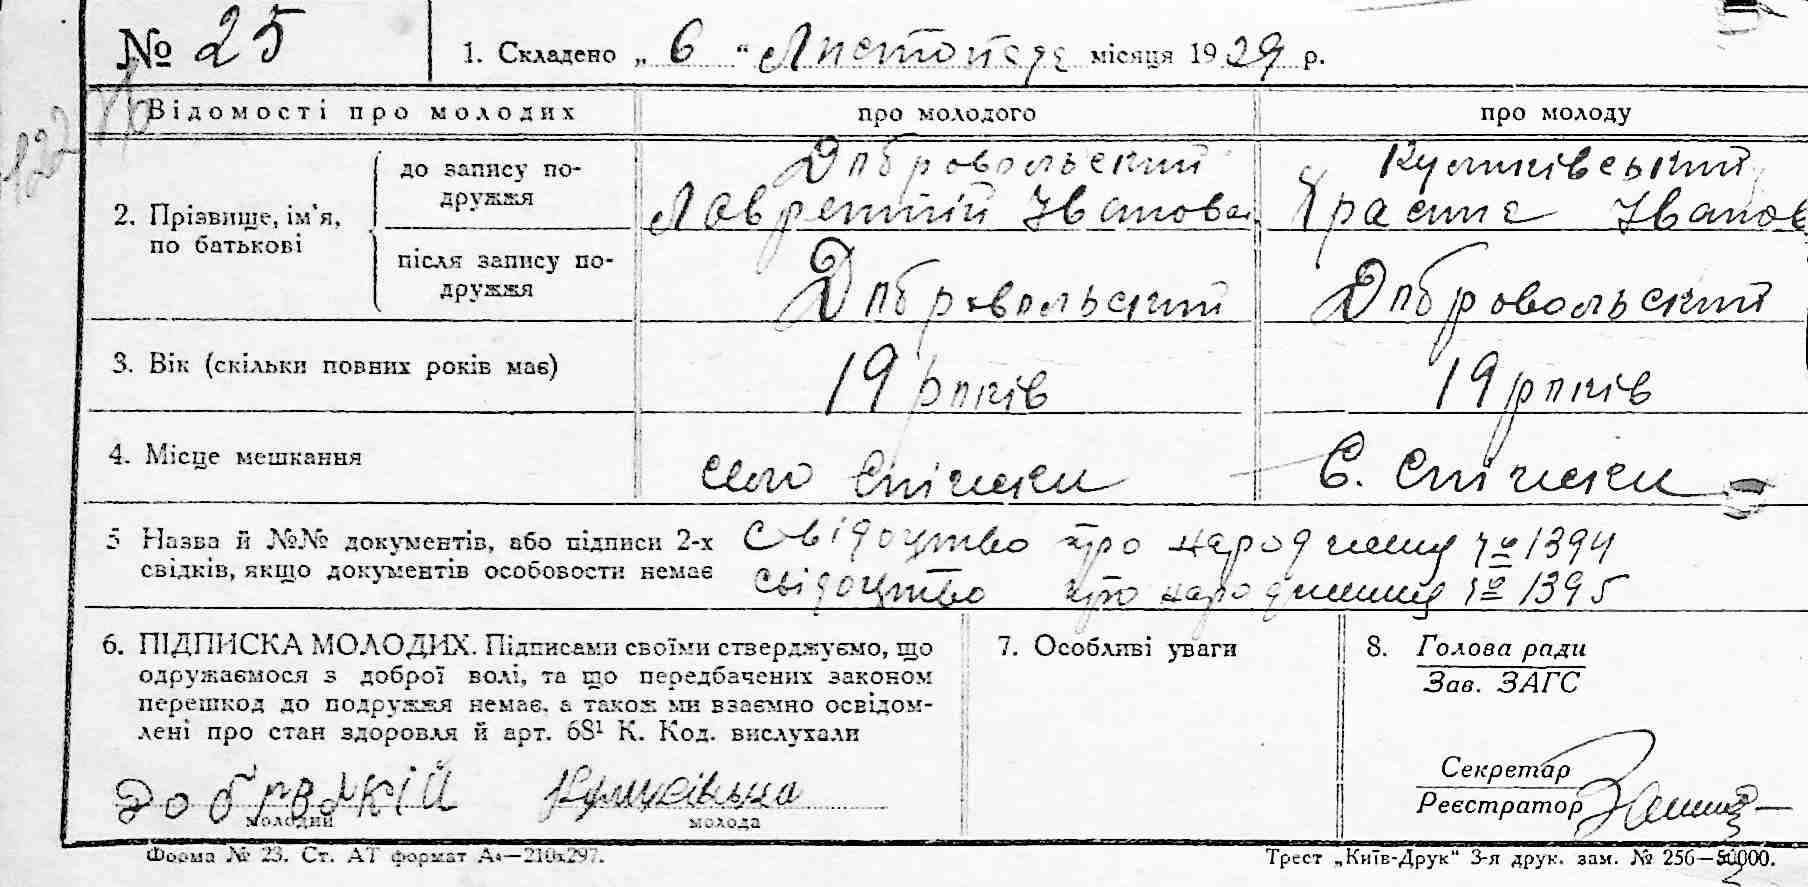 № 25
1. Складено „ 6 “ Листопада місяця 1929 р.
Відомості про молодих
про молодого
про молоду
2. Прізвище, ім'я, по батькові
до запису по-
дружжя
Добровольский
Лаврентій Іванов
Куликівський
Іванов
після запису по-
дружжя
Добровольский
Добровольский
3. Вік (скільки повних років має)
19 років
19 років
4. Місце мешкання
село Спічки
С. Спічки
5 Назва й №№ документів, або підписи 2-х
свідків, якщо документів особовости немає
Свідоцтво про народження № 1394
свідоцтво про народження № 1395
6. ПІДПИСКА МОЛОДИХ. Підписами своїми стверджуємо, що
одружаємося з доброї волі, та що передбачених законом
перешкод до подружжя немає, а також ми взаємно освідом-
лені про стан здоровля й арт. 68¹ К. Код. вислухали
Куликівська
молодий
молода
7. Особливі уваги
8. Голова ради
Зав. ЗАГС
Секретар
Реєстратор
Форма № 23. Ст. АТ формат А₄—210x297.
Трест „Київ-Друк“ 3-я друк. зам. № 256—50000.